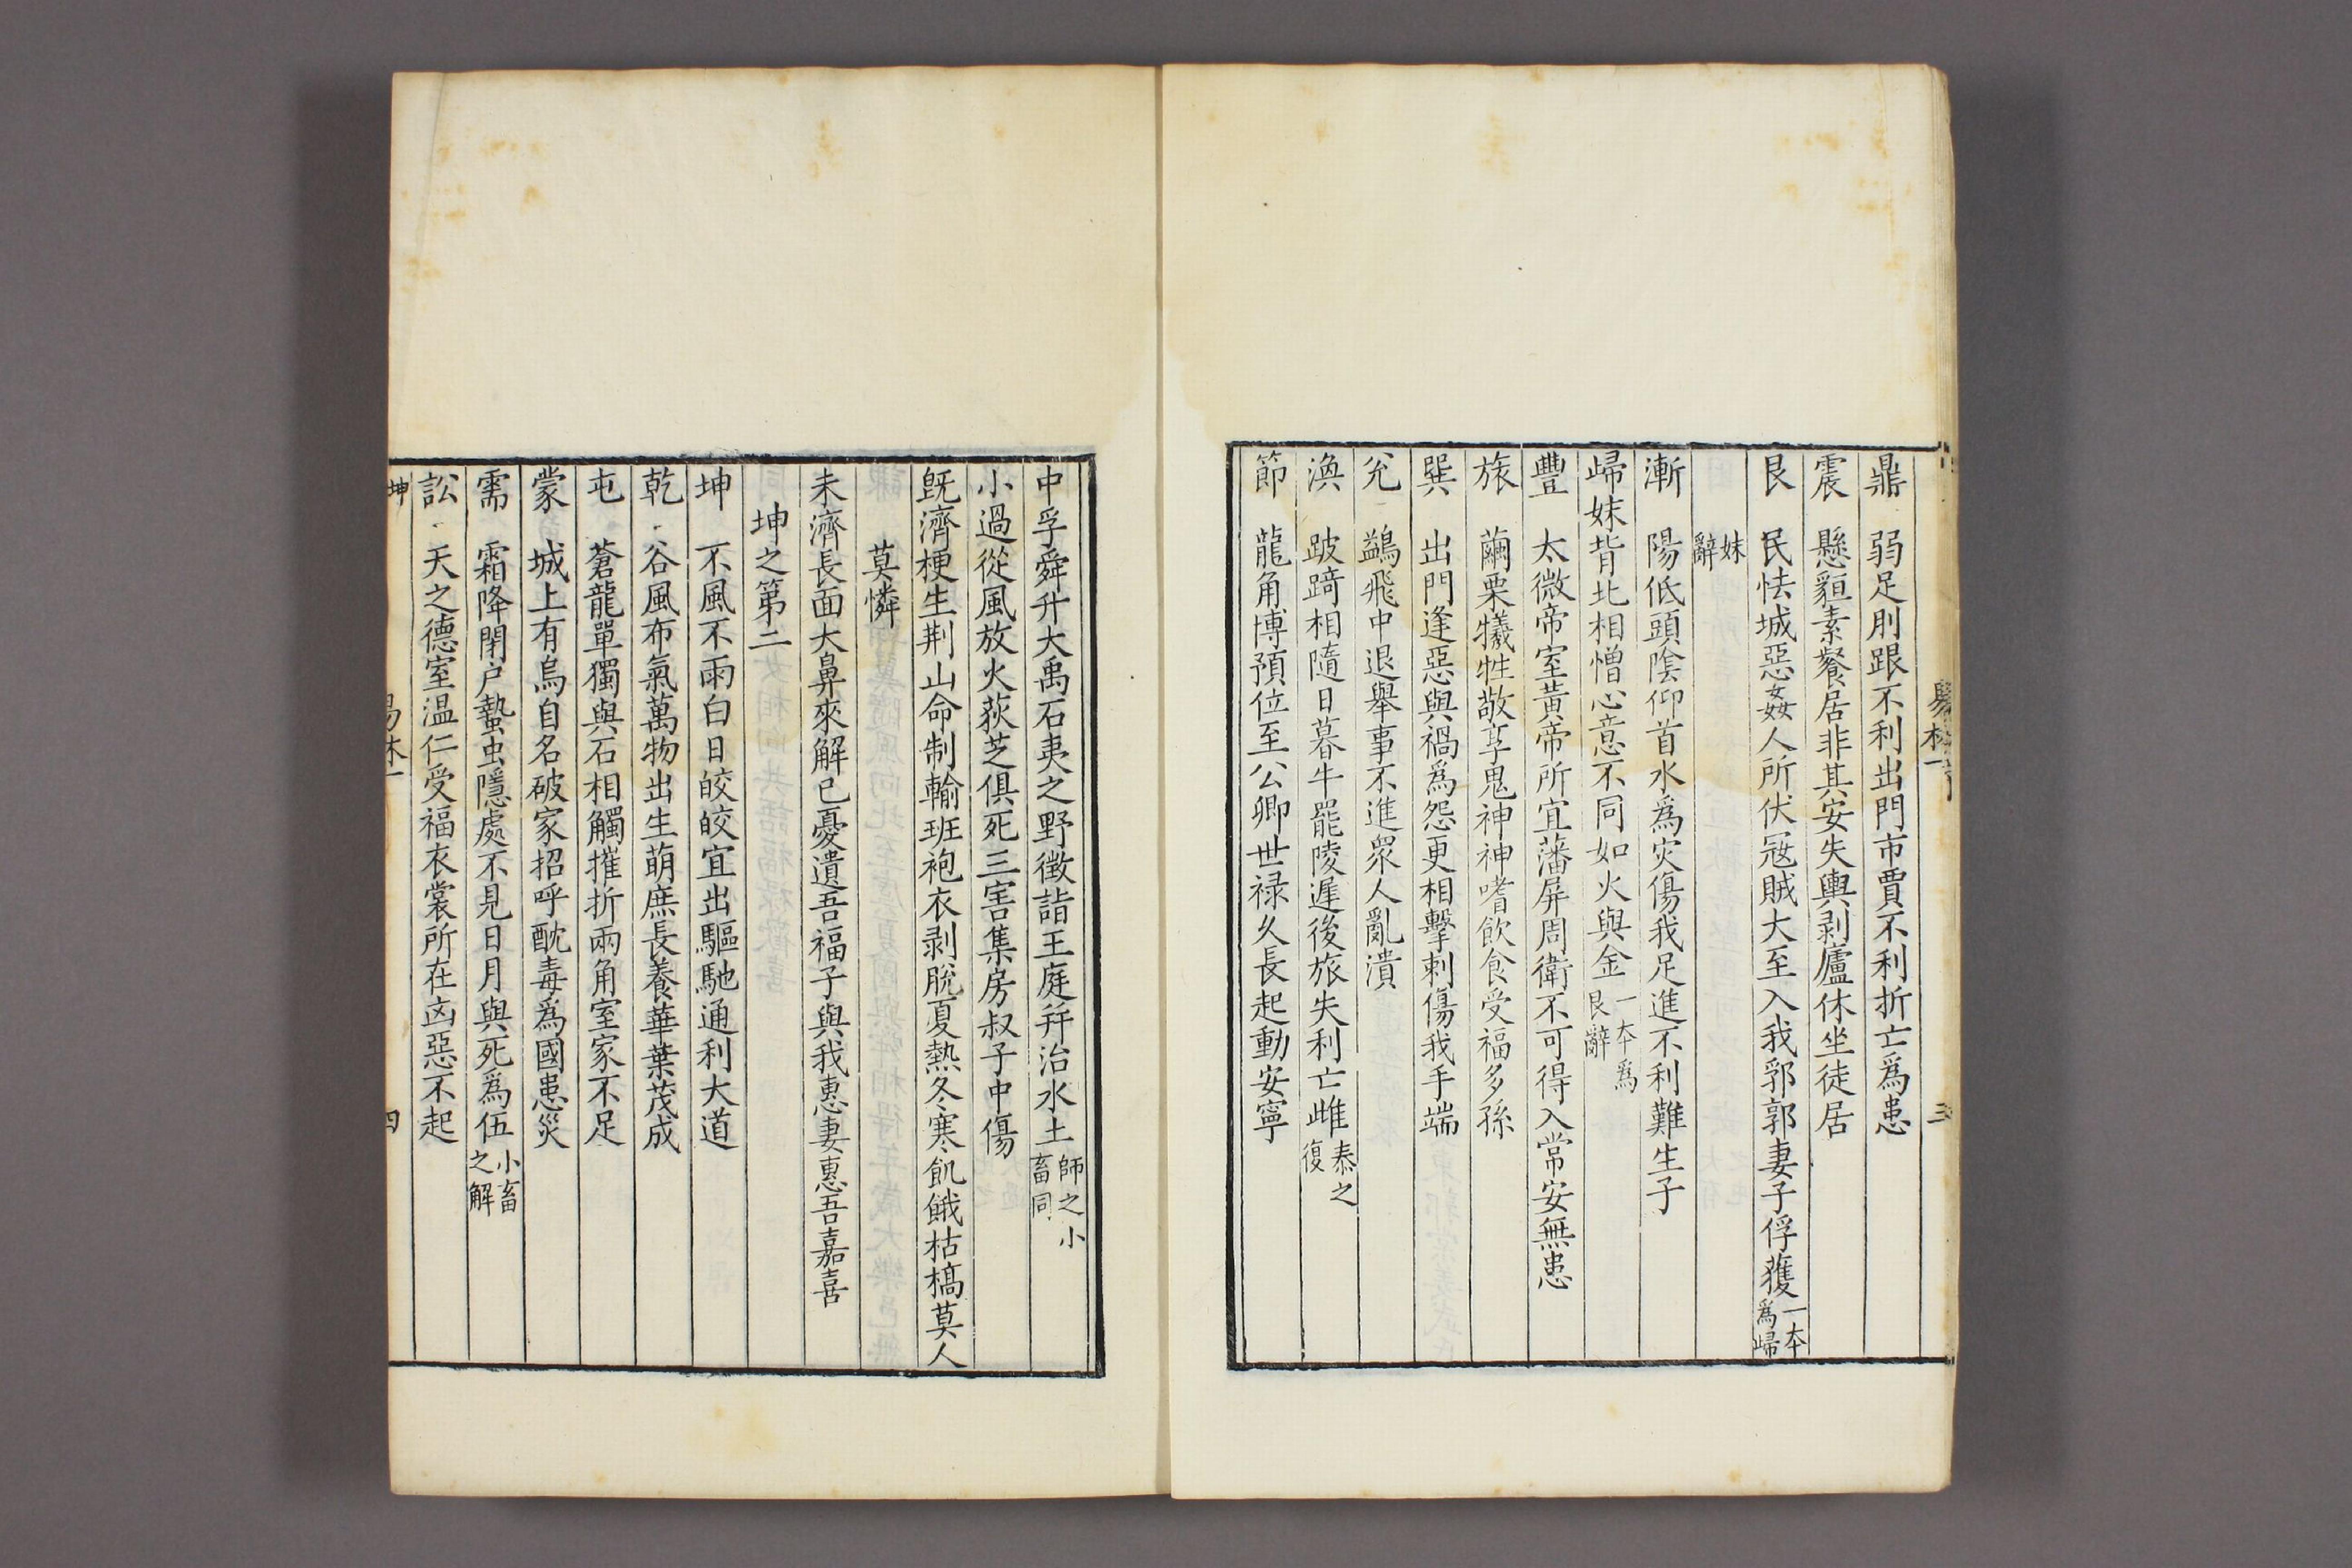 鼎 弱足刖跟不利出門市賈不利折亡爲患
震 懸貆素餐居非其安失輿剥廬休坐徒居
艮 民怯城惡姦人所伏冦賊大至入我郛郭妻子俘獲一本爲歸
妹辭
漸 陽低頭陰仰首水爲灾傷我足進不利難生子
歸妹背北相憎心意不同如火與金一本爲艮辭
豐 太微帝室黃帝所宜藩屏周衛不可得入常安無患
旅 繭栗犧牲敬享鬼神神嗜飲食受福多孫
巽 出門逢惡與禍爲怨更相擊刺傷我手端
兊 鷁飛中退舉事不進衆人亂潰
渙 跛踦相隨日暮牛罷陵遲後旅失利亡雌泰之復
節 龍角博預位至公卿世禄久長起動安寧
中孚舜升大禹石夷之野徵詣王庭并治水土師之小畜同
小過從風放火荻芝俱死三害集房叔子中傷
旣濟梗生荆山命制輸班袍衣剥脫夏熱冬寒飢餓枯槁莫人
莫憐
未濟長面大鼻來解已憂遺吾福子與我惠妻惠吾嘉喜
坤之第二
坤 不風不雨白日皎皎宜出驅馳通利大道
乾 谷風布氣萬物出生萌庶長養華葉茂成
屯 蒼龍單獨與石相觸摧折兩角室家不足
蒙 城上有烏自名破家招呼酖毒爲國患災
需 霜降閉户蟄虫隱處不見日月與死爲伍小畜之解
訟 天之德室温仁受福衣裳所在凶惡不起
坤 易林一 四